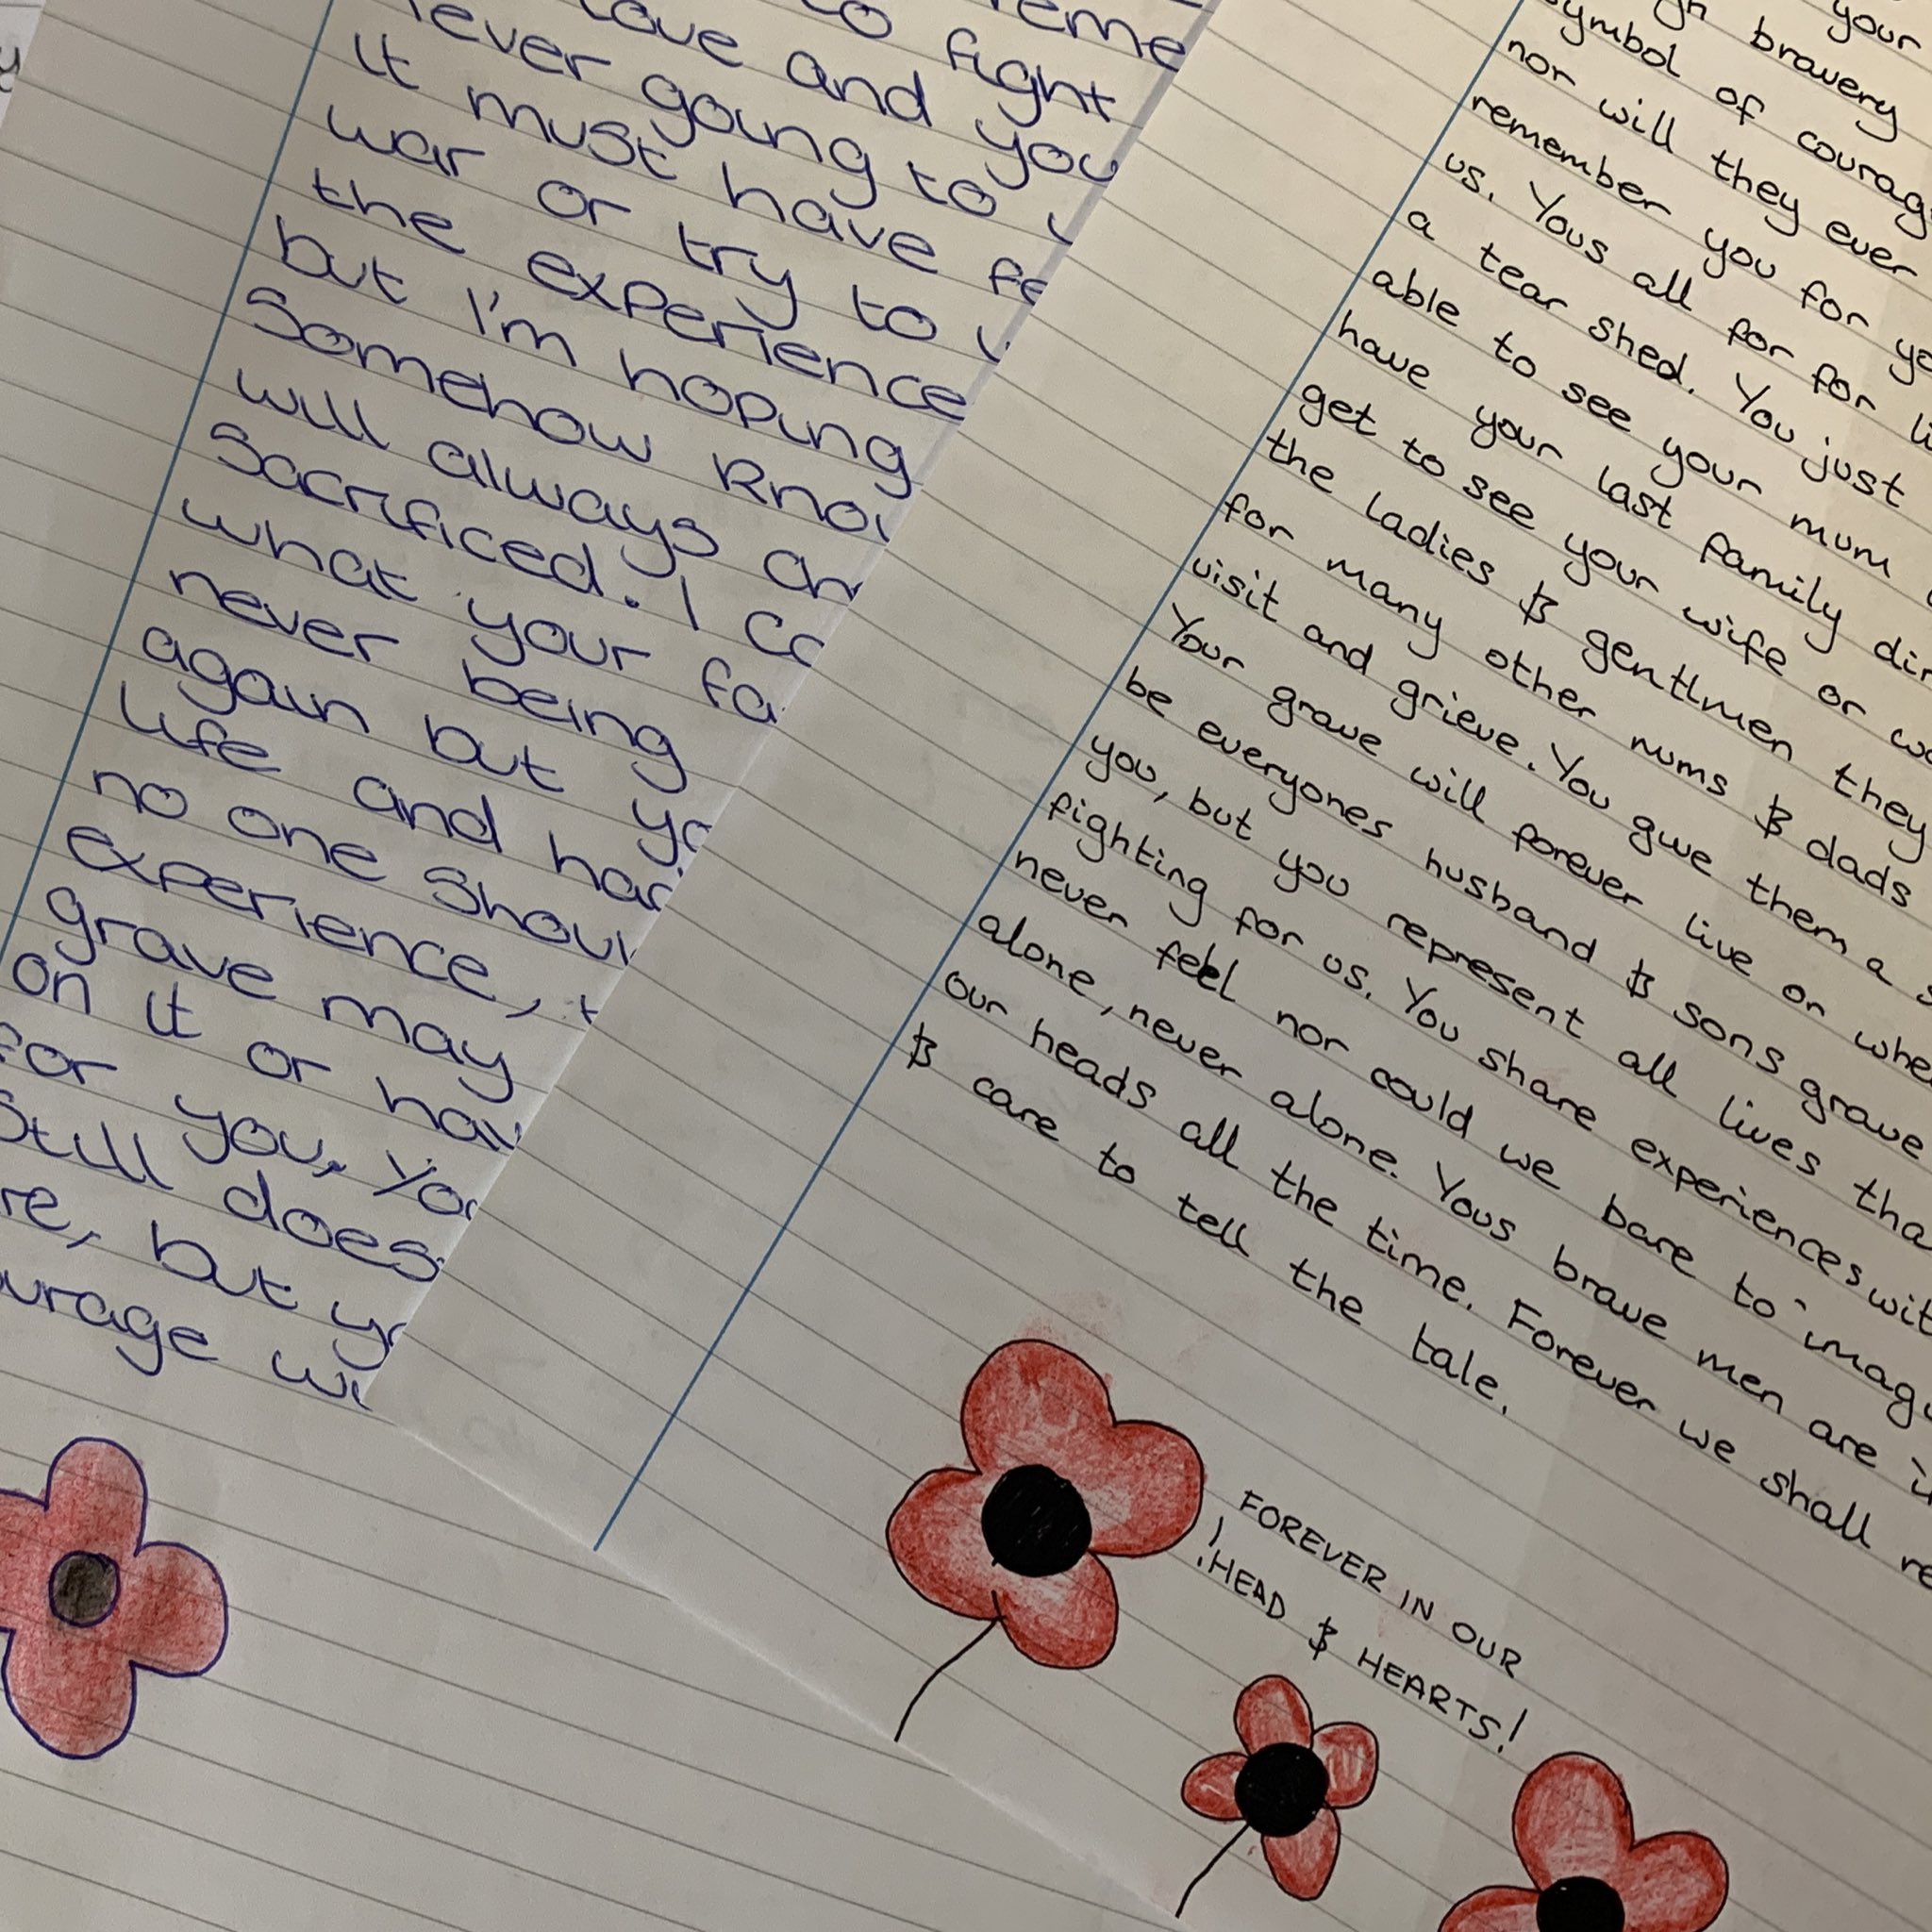 to fight
love and you
never going to
it must have
war or try to
the experience
but I'm hoping
Somehow
will always
Sacrificed. I
what your
never being
again but
life and
no one
experience,
grave may
on it or
for you,
Still does
but
bravery
your
symbol of
nor will they ever
remember you for
us. Yous all for for
a tear shed. You just
able to see your mum
have your last family
get to see your wife or
the ladies & gentlmen they
for many other nums & dads
visit and grieve. You gwe them a
Your grave will forever live on
be everyones husband & sons grave
you, but you represent all lives
fighting for us. You share experiences
never feel nor could we bare to
alone, never alone. Yous brave men are
our heads all the time. Forever we shall
& care to tell the tale.
FOREVER IN OUR
HEAD & HEARTS!